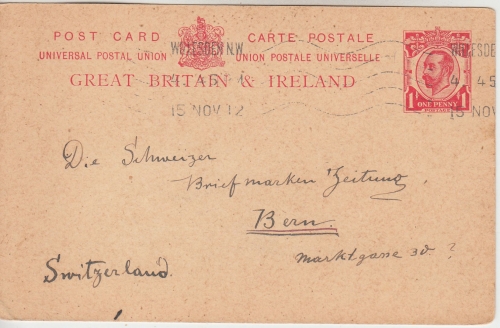 POST CARD CARTE POSTALE
UNIVERSAL POSTAL UNION UNION POSTALE UNIVERSELLE
GREAT BRITAIN & IRELAND
WILLESDEN N.W.
4 45
15 NOV 12
1 ONE PENNY 1
POSTAGE
4 45
15 NOV
Die Schweizer
Briefmarken Zeitung
Bern.
Marktgasse 30. ?
Switzerland.